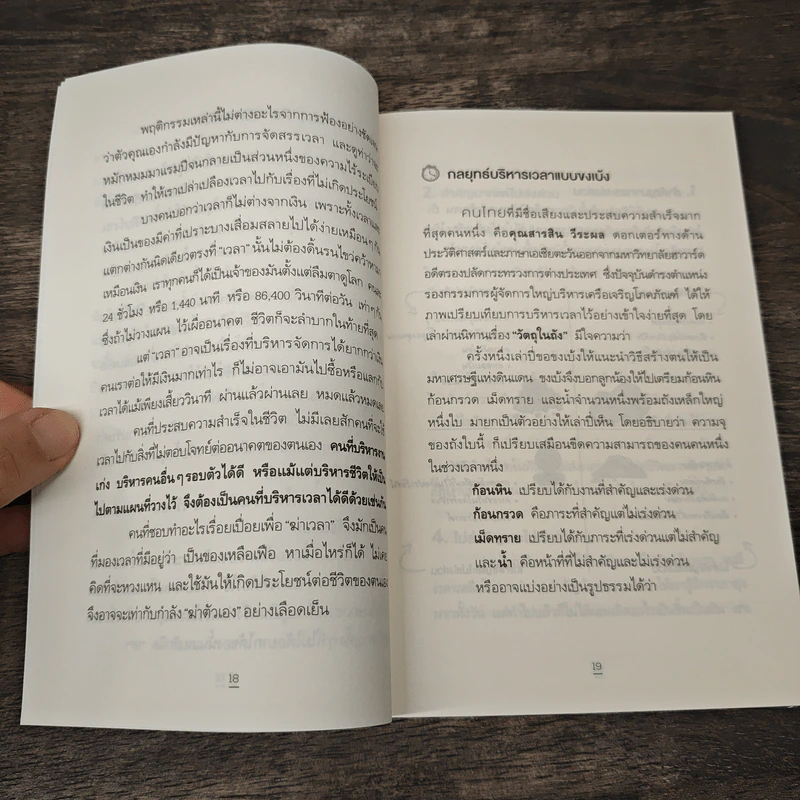 พฤติกรรมเหล่านี้ไม่ต่างอะไรจากการฟ้องอย่างชัดเจน
ว่าตัวคุณเองกำลังมีปัญหากับการจัดสรรเวลา และดูท่าว่า
หมักหมมมาแรมปีจนกลายเป็นส่วนหนึ่งของความไร้ระเบียบ
ในชีวิต ทำให้เราเปล่าเปลืองเวลาไปกับเรื่องที่ไม่เกิดประโยชน์
บางคนบอกว่าเวลาก็ไม่ต่างจากเงิน เพราะทั้งเวลาและ
เงินเป็นของมีค่าที่เปราะบางเสื่อมสลายไปได้ง่ายเหมือนๆ กัน
แตกต่างกันนิดเดียวตรงที่ "เวลา" นั้นไม่ต้องดิ้นรนไขว่คว้าหา
เหมือนเงิน เราทุกคนก็ได้เป็นเจ้าของมันตั้งแต่ลืมตาดูโลก
24 ชั่วโมง หรือ 1,440 นาที หรือ 86,400 วินาทีต่อวัน เท่าๆ กัน
ซึ่งถ้าไม่วางแผน ไว้เผื่ออนาคต ชีวิตก็จะลำบากในท้ายที่สุด
แต่ "เวลา" อาจเป็นเรื่องที่บริหารจัดการได้ยากกว่าเงิน
คนเราต่อให้มีเงินมากเท่าไร ก็ไม่อาจเอามันไปซื้อหรือแลกกับ
เวลาได้แม้เพียงเสี้ยววินาที ผ่านแล้วผ่านเลย หมดแล้วหมดเลย
คนที่ประสบความสำเร็จในชีวิต ไม่มีเลยสักคนที่จะใช้
เวลาไปกับสิ่งที่ไม่ตอบโจทย์ต่ออนาคตของตนเอง คนที่บริหารงาน
เก่ง บริหารคนอื่นๆ รอบตัวได้ดี หรือแม้แต่บริหารชีวิตให้เป็น
ไปตามแผนที่วางไว้ จึงต้องเป็นคนที่บริหารเวลาได้ดีด้วยเช่นกัน
คนที่ชอบทำอะไรเรื่อยเปื่อยเพื่อ "ฆ่าเวลา" จึงมักเป็นคน
ที่มองเวลาที่มีอยู่ว่า เป็นของเหลือเฟือ หาเมื่อไหร่ก็ได้ ไม่เคย
คิดที่จะหวงแหน และใช้มันให้เกิดประโยชน์ต่อชีวิตของตนเอง
จึงอาจจะเท่ากับกำลัง "ฆ่าตัวเอง" อย่างเลือดเย็น
18
กลยุทธ์บริหารเวลาแบบขงเบ้ง
คนไทยที่มีชื่อเสียงและประสบความสำเร็จมาก
ที่สุดคนหนึ่ง คือคุณสารสิน วีระผล ดอกเตอร์ทางด้าน
ประวัติศาสตร์และภาษาเอเชียตะวันออกจากมหาวิทยาลัยฮาวาร์ด
อดีตรองปลัดกระทรวงการต่างประเทศ ซึ่งปัจจุบันดำรงตำแหน่ง
รองกรรมการผู้จัดการใหญ่บริษัทเครือเจริญโภคภัณฑ์ ได้ให้
ภาพเปรียบเทียบการบริหารเวลาไว้อย่างเข้าใจง่ายที่สุด โดย
เล่าผ่านนิทานเรื่อง "วัตถุในถัง" มีใจความว่า
ครั้งหนึ่งเล่าปี่ขอขงเบ้งให้แนะนำวิธีสร้างตนให้เป็น
มหาเศรษฐีแห่งดินแดน ขงเบ้งจึงบอกลูกน้องให้ไปเตรียมก้อนหิน
ก้อนกรวด เม็ดทราย และน้ำจำนวนหนึ่งพร้อมถังเหล็กใหญ่
หนึ่งใบ มายกเป็นตัวอย่างให้เล่าปี่เห็น โดยอธิบายว่า ความจุ
ของถังใบนี้ ก็เปรียบเสมือนขีดความสามารถของคนคนหนึ่ง
ในช่วงเวลาหนึ่ง
ก้อนหิน เปรียบได้กับงานที่สำคัญและเร่งด่วน
ก้อนกรวด คือภาระที่สำคัญแต่ไม่เร่งด่วน
เม็ดทราย เปรียบได้กับภาระที่เร่งด่วนแต่ไม่สำคัญ
และ น้ำ คือหน้าที่ที่ไม่สำคัญและไม่เร่งด่วน
หรืออาจแบ่งอย่างเป็นรูปธรรมได้ว่า
19